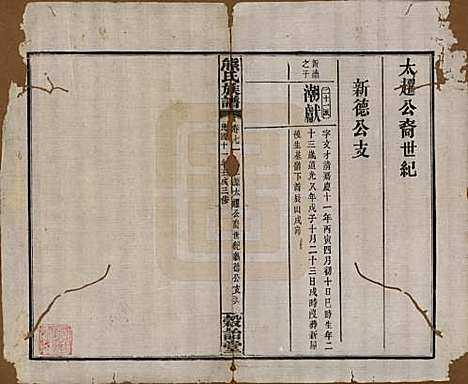 太耀公裔世紀
新德公支
新德
之子
潮獻
字文才清嘉慶十一年丙寅四月初十日巳時生年二
十三歲道光八年戊子十月二十三日戌時歿葬新屋
後生基嶺下辰山戌向
熊氏族譜
卷七
太耀公裔世紀新德公支
民國十
三修
榖詒堂